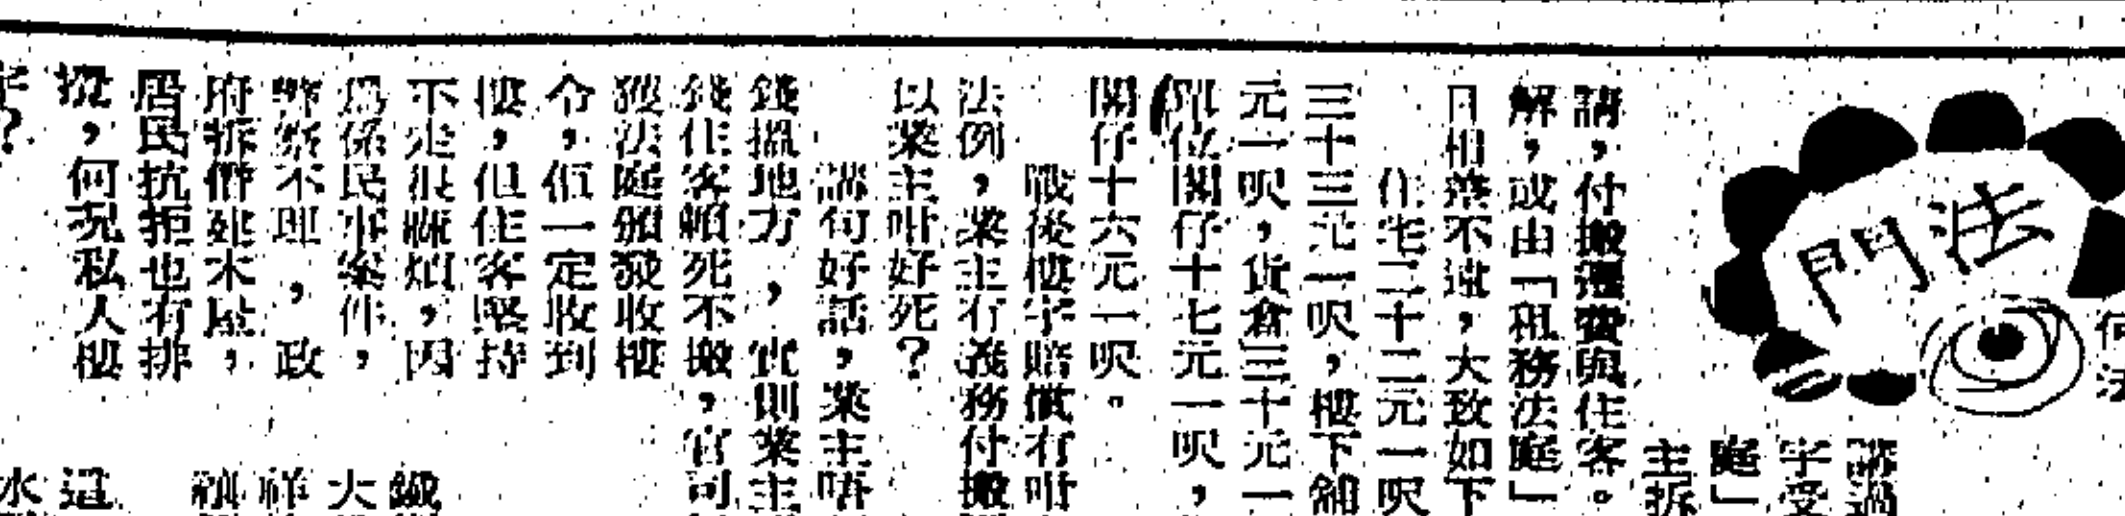 法門
何法
講過
字受
庭」
主拆
請，付搬遷費與住客。
解，或由「租務法庭」
目相差不遠，大致如下
住宅二十二元一呎
三十三元一呎，樓下舖
元一呎，貨倉三十元一
單位閣仔十七元一呎，
閣仔十六元一呎。
戰後樓宇賠償有咁
法例，業主有義務付搬
以業主咁好死？
講句好話，業主唔
錢搵地方，實則業主
錢住客賴死不搬，官司
獲法庭頒發收樓
令，但一定收到
樓，但住客堅持
不走很麻煩，因
爲係民事案件，
警察不理，政
府拆僭建木屋，
居民抗拒也有排
搅，何況私人樓
宇？
鐵
大
祥
這
水